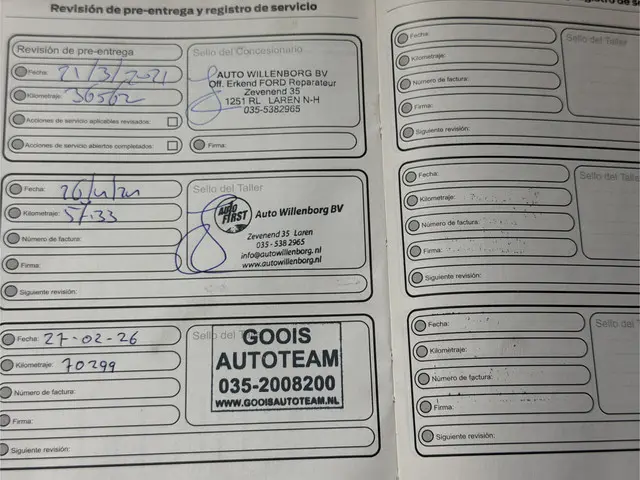 Revisión de pre-entrega y registro de servicio
Revisión de pre-entrega
Sello del Concesionario
Fecha: 21/3/2021
Kilometraje: 36562
Acciones de servicio aplicables revisados:
Acciones de servicio abiertos completados:
AUTO WILLENBORG BV
Off. Erkend FORD Reparateur
Zevenend 35
1251 RL LAREN N-H
035-5382965
Firma:
Fecha:
Kilometraje:
Número de factura:
Firma:
Siguiente revisión:
Sello del Taller
AUTO FIRST
Auto Willenborg BV
Zevenend 35 Laren
035 - 538 2965
info@autowillenborg.nl
www.autowillenborg.nl
Fecha: 27-02-26
Kilometraje: 70299
Número de factura:
Firma:
Siguiente revisión:
Sello del Taller
GOOIS
AUTOTEAM
035-2008200
WWW.GOOISAUTOTEAM.NL
Fecha:
Kilometraje:
Número de factura:
Firma:
Siguiente revisión:
Sello del Taller
Fecha:
Kilometraje:
Número de factura:
Firma:
Siguiente revisión:
Sello del Talle
Fecha:
Kilometraje:
Número de factura:
Firma:
Siguiente revisión:
Sello del T